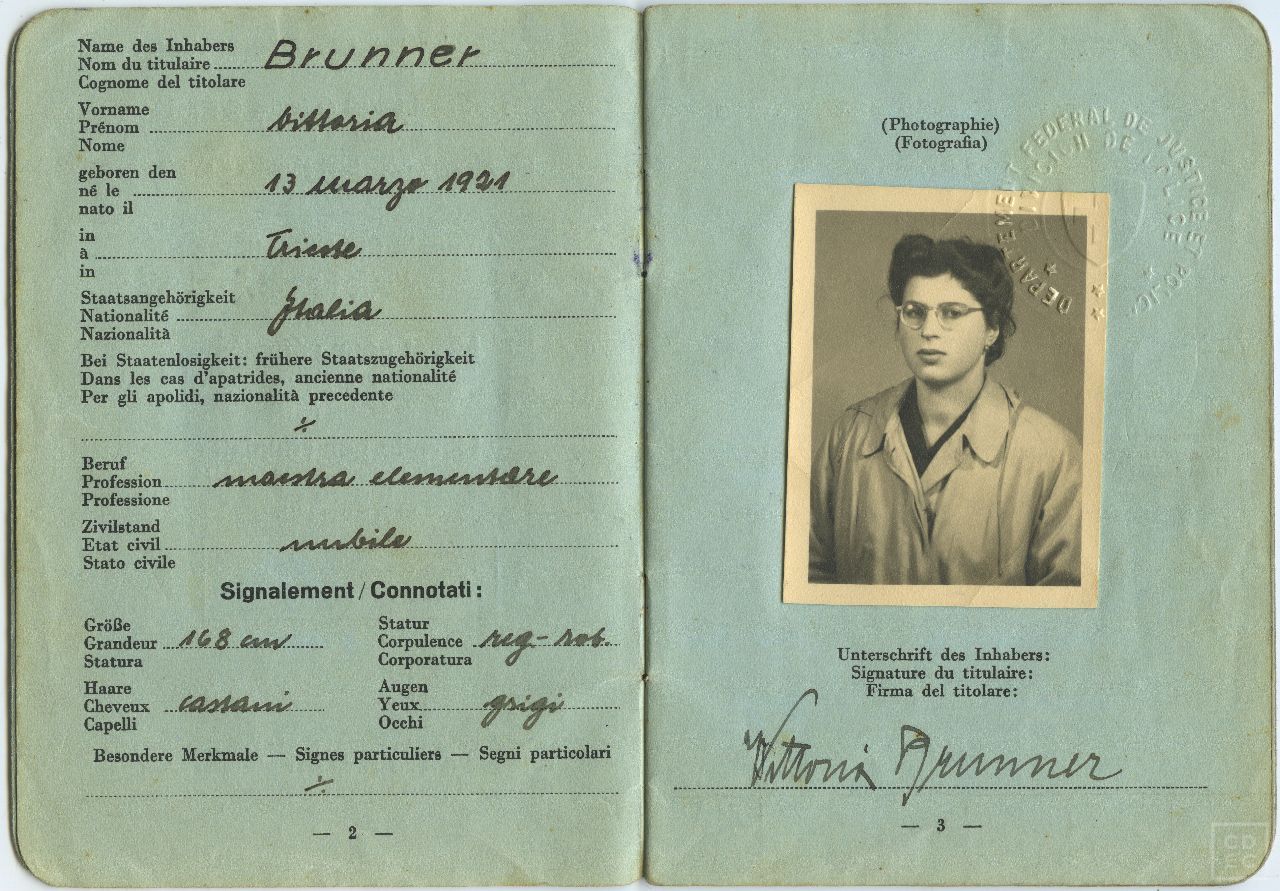 Name des Inhabers
Nom du titulaire Brunner
Cognome del titolare
Vorname
Prénom Vittoria
Nome
geboren den
né le 13 marzo 1921
nato il
in
à Trieste
in
Staatsangehörigkeit
Nationalité Italia
Nazionalità
Bei Staatenlosigkeit: frühere Staatszugehörigkeit
Dans les cas d'apatrides, ancienne nationalité
Per gli apolidi, nazionalità precedente
÷
Beruf
Profession maestra elementare
Professione
Zivilstand
Etat civil nubile
Stato civile
Signalement / Connotati:
Größe
Grandeur 168 cm
Statura
Statur
Corpulence reg-rob.
Corporatura
Haare
Cheveux castani
Capelli
Augen
Yeux grigi
Occhi
Besondere Merkmale — Signes particuliers — Segni particolari
÷
— 2 —
(Photographie)
(Fotografia)
DEPARTEMENT FEDERAL DE JUSTICE ET POLICE
DE POLICE
Unterschrift des Inhabers:
Signature du titulaire:
Firma del titolare:
Vittoria Brunner
— 3 —
CD
EC